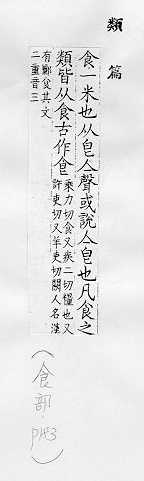 類篇
食一米也从皀亼聲或說亼皀也凡食之
類皆从食古作
乘力切食又疾二切糧也又
許吏切又羊吏切闕人名漢
有酈食其文
二重音三
(食部.P183)